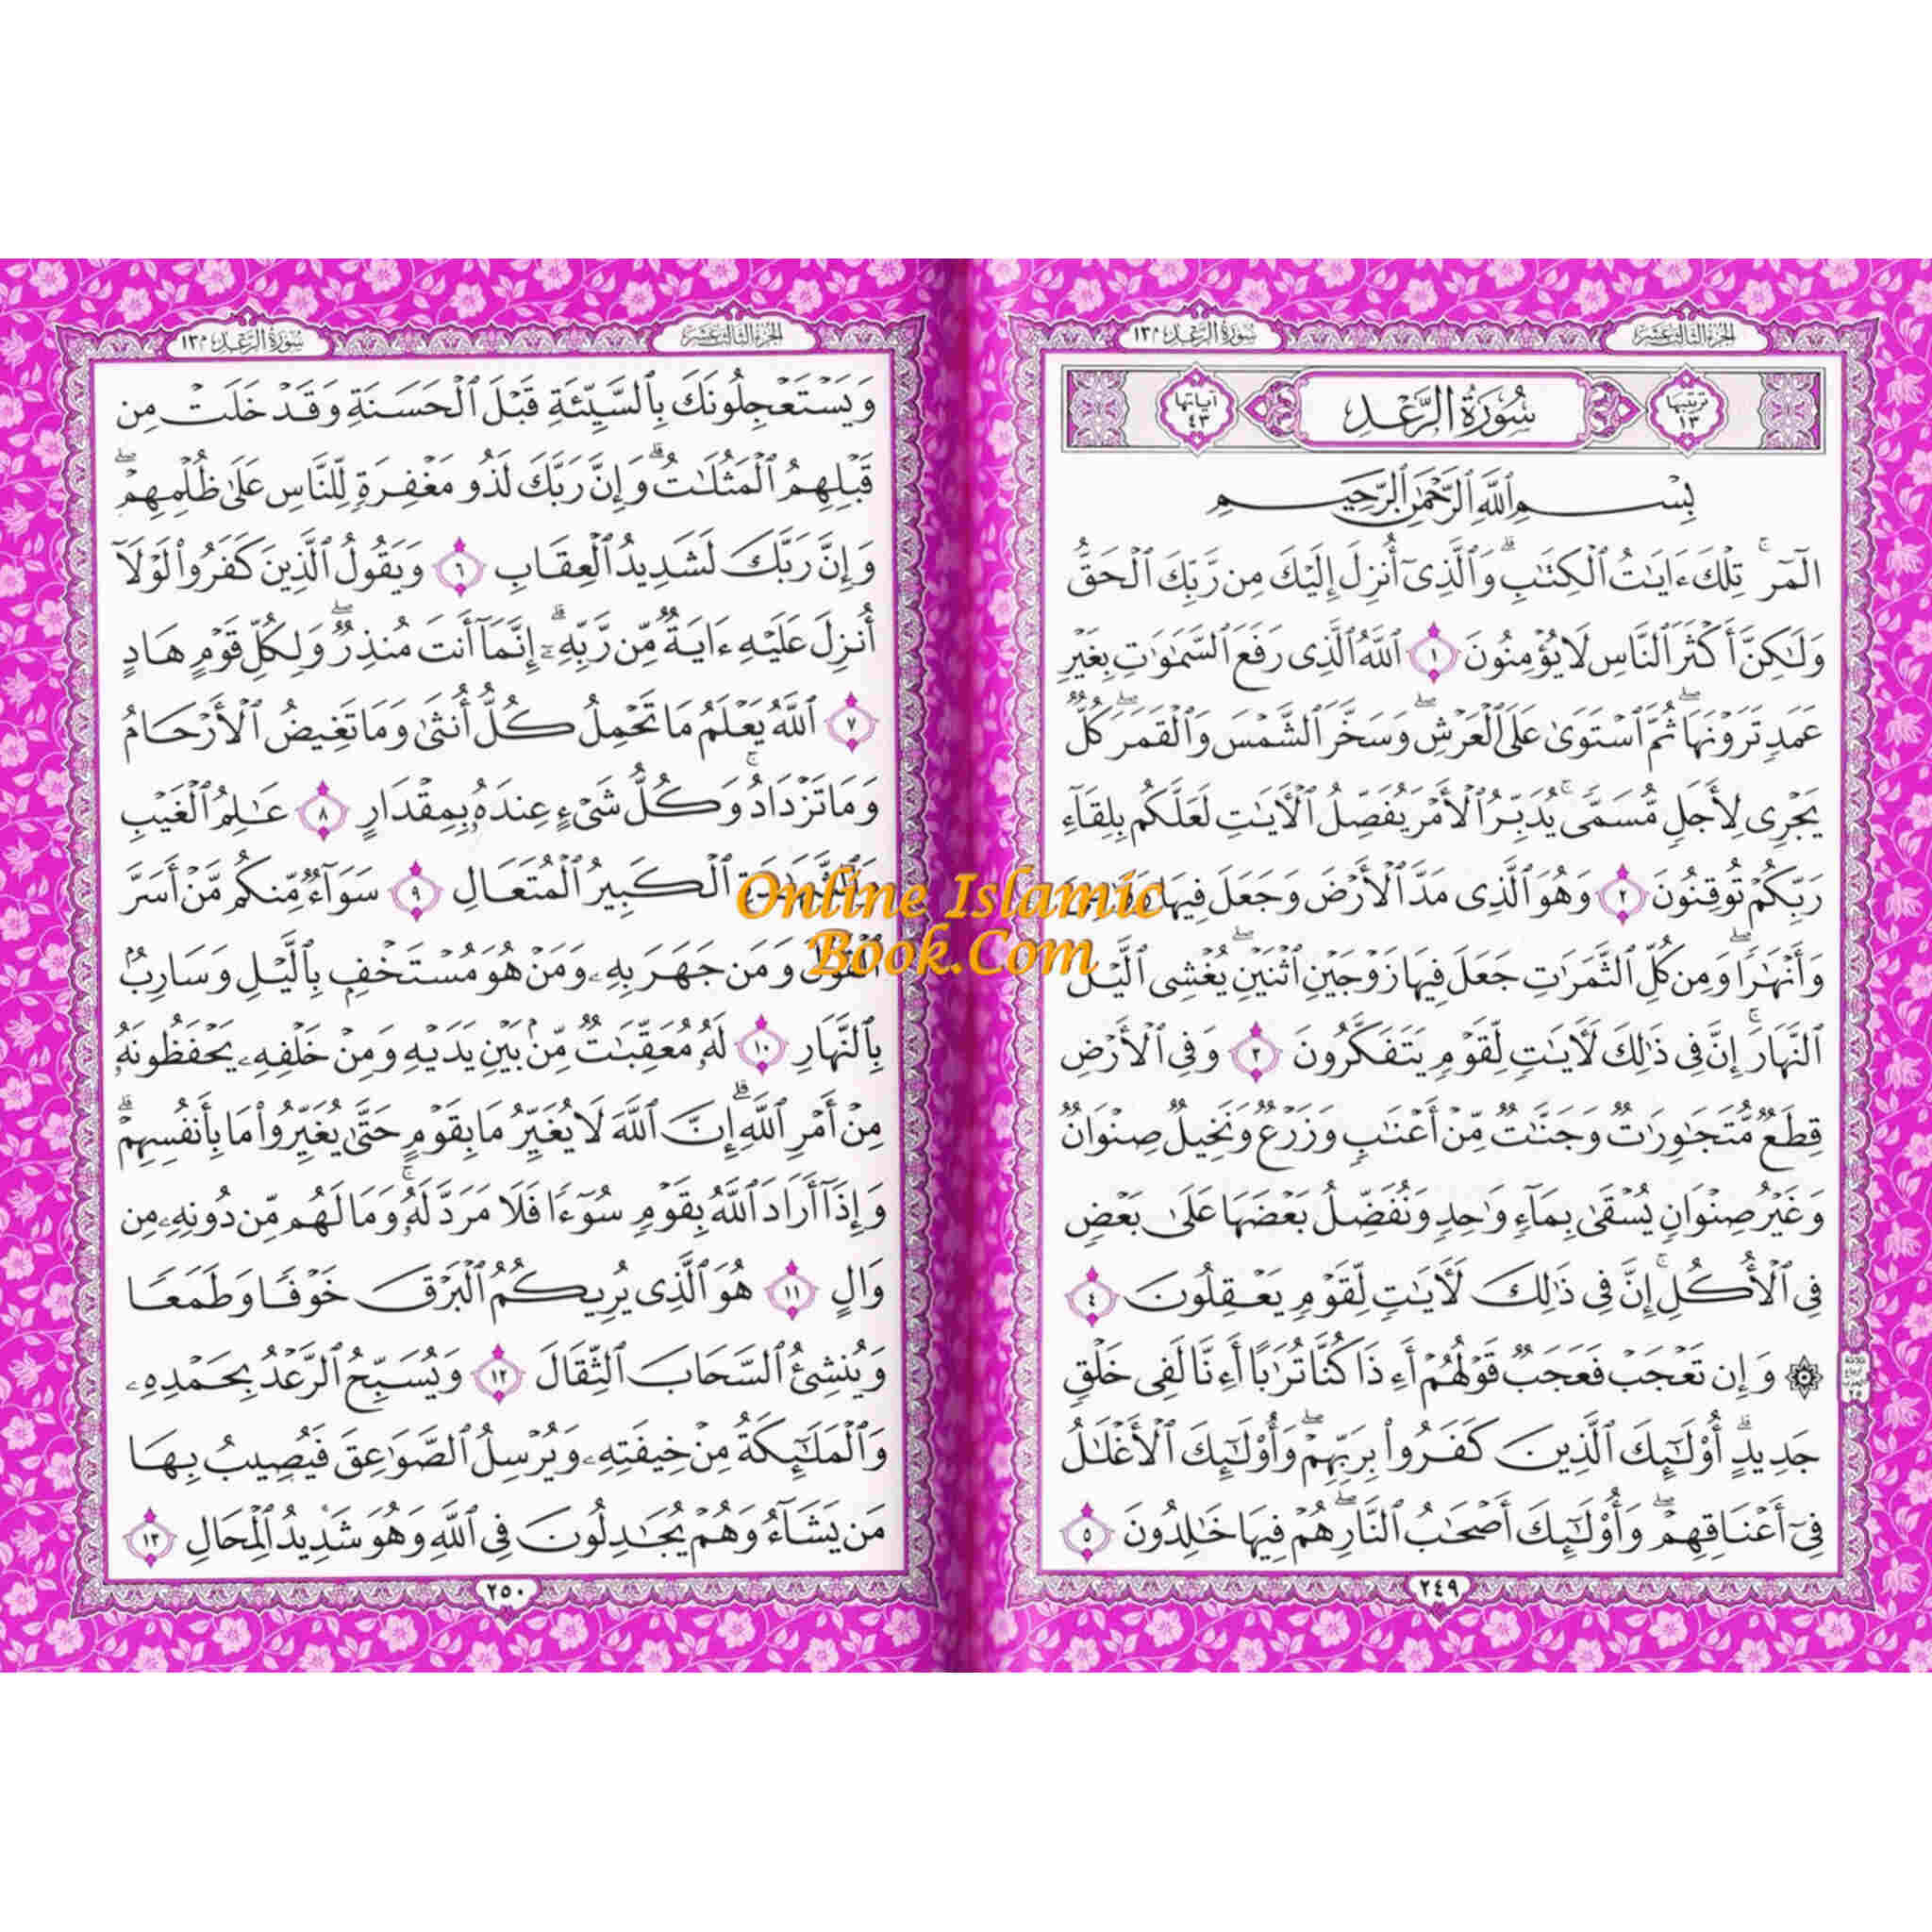 الجزء الثالث عشر
سورة الرعد ١٣
ترتيبها ١٣
سُورَةُ الرَّعْدِ
آياتها ٤٣
بِسْمِ ٱللَّهِ ٱلرَّحْمَٰنِ ٱلرَّحِيمِ
الٓمٓرۚ تِلْكَ ءَايَٰتُ ٱلْكِتَٰبِۗ وَٱلَّذِىٓ أُنزِلَ إِلَيْكَ مِن رَّبِّكَ ٱلْحَقُّ
وَلَٰكِنَّ أَكْثَرَ ٱلنَّاسِ لَا يُؤْمِنُونَ ١ ٱللَّهُ ٱلَّذِى رَفَعَ ٱلسَّمَٰوَٰتِ بِغَيْرِ
عَمَدٍ تَرَوْنَهَاۖ ثُمَّ ٱسْتَوَىٰ عَلَى ٱلْعَرْشِۖ وَسَخَّرَ ٱلشَّمْسَ وَٱلْقَمَرَۖ كُلٌّ
يَجْرِى لِأَجَلٍ مُّسَمًّىۚ يُدَبِّرُ ٱلْأَمْرَ يُفَصِّلُ ٱلْءَايَٰتِ لَعَلَّكُم بِلِقَآءِ
رَبِّكُمْ تُوقِنُونَ ٢ وَهُوَ ٱلَّذِى مَدَّ ٱلْأَرْضَ وَجَعَلَ فِيهَا
وَأَنْهَٰرًاۖ وَمِن كُلِّ ٱلثَّمَرَٰتِ جَعَلَ فِيهَا زَوْجَيْنِ ٱثْنَيْنِۖ يُغْشِى ٱلَّيْلَ
ٱلنَّهَارَۚ إِنَّ فِى ذَٰلِكَ لَءَايَٰتٍ لِّقَوْمٍ يَتَفَكَّرُونَ ٣ وَفِى ٱلْأَرْضِ
قِطَعٌ مُّتَجَٰوِرَٰتٌ وَجَنَّٰتٌ مِّنْ أَعْنَٰبٍ وَزَرْعٌ وَنَخِيلٌ صِنْوَانٌ
وَغَيْرُ صِنْوَانٍ يُسْقَىٰ بِمَآءٍ وَٰحِدٍ وَنُفَضِّلُ بَعْضَهَا عَلَىٰ بَعْضٍ
فِى ٱلْأُكُلِۚ إِنَّ فِى ذَٰلِكَ لَءَايَٰتٍ لِّقَوْمٍ يَعْقِلُونَ ٤
۞ وَإِن تَعْجَبْ فَعَجَبٌ قَوْلُهُمْ أَءِذَا كُنَّا تُرَٰبًا أَءِنَّا لَفِى خَلْقٍ
جَدِيدٍۗ أُو۟لَٰٓئِكَ ٱلَّذِينَ كَفَرُوا۟ بِرَبِّهِمْۖ وَأُو۟لَٰٓئِكَ ٱلْأَغْلَٰلُ
فِىٓ أَعْنَاقِهِمْۖ وَأُو۟لَٰٓئِكَ أَصْحَٰبُ ٱلنَّارِۖ هُمْ فِيهَا خَٰلِدُونَ ٥
٢٤٩
الجزء الثالث عشر
سورة الرعد ١٣
وَيَسْتَعْجِلُونَكَ بِٱلسَّيِّئَةِ قَبْلَ ٱلْحَسَنَةِ وَقَدْ خَلَتْ مِن
قَبْلِهِمُ ٱلْمَثُلَٰتُۗ وَإِنَّ رَبَّكَ لَذُو مَغْفِرَةٍ لِّلنَّاسِ عَلَىٰ ظُلْمِهِمْۖ
وَإِنَّ رَبَّكَ لَشَدِيدُ ٱلْعِقَابِ ٦ وَيَقُولُ ٱلَّذِينَ كَفَرُوا۟ لَوْلَآ
أُنزِلَ عَلَيْهِ ءَايَةٌ مِّن رَّبِّهِۦٓۗ إِنَّمَآ أَنتَ مُنذِرٌۖ وَلِكُلِّ قَوْمٍ هَادٍ
٧ ٱللَّهُ يَعْلَمُ مَا تَحْمِلُ كُلُّ أُنثَىٰ وَمَا تَغِيضُ ٱلْأَرْحَامُ
وَمَا تَزْدَادُۚ وَكُلُّ شَىْءٍ عِندَهُۥ بِمِقْدَارٍ ٨ عَٰلِمُ ٱلْغَيْبِ
ٱلْكَبِيرُ ٱلْمُتَعَالِ ٩ سَوَآءٌ مِّنكُم مَّنْ أَسَرَّ
ٱلْقَوْلَ وَمَن جَهَرَ بِهِۦ وَمَنْ هُوَ مُسْتَخْفٍۭ بِٱلَّيْلِ وَسَارِبٌۢ
بِٱلنَّهَارِ ١٠ لَهُۥ مُعَقِّبَٰتٌ مِّنۢ بَيْنِ يَدَيْهِ وَمِنْ خَلْفِهِۦ يَحْفَظُونَهُۥ
مِنْ أَمْرِ ٱللَّهِۗ إِنَّ ٱللَّهَ لَا يُغَيِّرُ مَا بِقَوْمٍ حَتَّىٰ يُغَيِّرُوا۟ مَا بِأَنفُسِهِمْۗ
وَإِذَآ أَرَادَ ٱللَّهُ بِقَوْمٍ سُوٓءًا فَلَا مَرَدَّ لَهُۥۚ وَمَا لَهُم مِّن دُونِهِۦ مِن
وَالٍ ١١ هُوَ ٱلَّذِى يُرِيكُمُ ٱلْبَرْقَ خَوْفًا وَطَمَعًا
وَيُنشِئُ ٱلسَّحَابَ ٱلثِّقَالَ ١٢ وَيُسَبِّحُ ٱلرَّعْدُ بِحَمْدِهِۦ
وَٱلْمَلَٰٓئِكَةُ مِنْ خِيفَتِهِۦ وَيُرْسِلُ ٱلصَّوَٰعِقَ فَيُصِيبُ بِهَا
مَن يَشَآءُ وَهُمْ يُجَٰدِلُونَ فِى ٱللَّهِ وَهُوَ شَدِيدُ ٱلْمِحَالِ ١٣
٢٥٠
Online Islamic
Book.Com